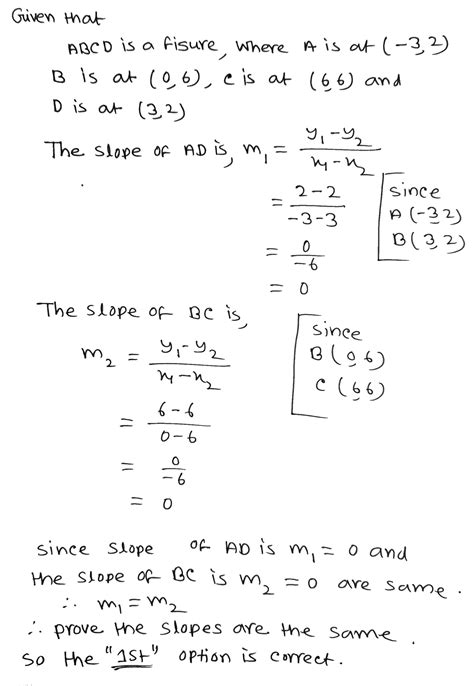 Given that
ABCD is a figure, where A is at (-3,2)
B is at (0,6), C is at (6,6) and
D is at (3,2)
The slope of AD is, m₁ = (y₁-y₂)/(x₁-x₂)
= (2-2)/(-3-3)
= 0/-6
= 0
since
A(-3,2)
B(3,2)
The slope of BC is,
m₂ = (y₁-y₂)/(x₁-x₂)
= (6-6)/(0-6)
= 0/-6
= 0
since
B(0,6)
C(6,6)
since slope of AD is m₁ = 0 and
the slope of BC is m₂ = 0 are same.
∴ m₁ = m₂
∴ prove the slopes are the same.
so the "1st" option is correct.